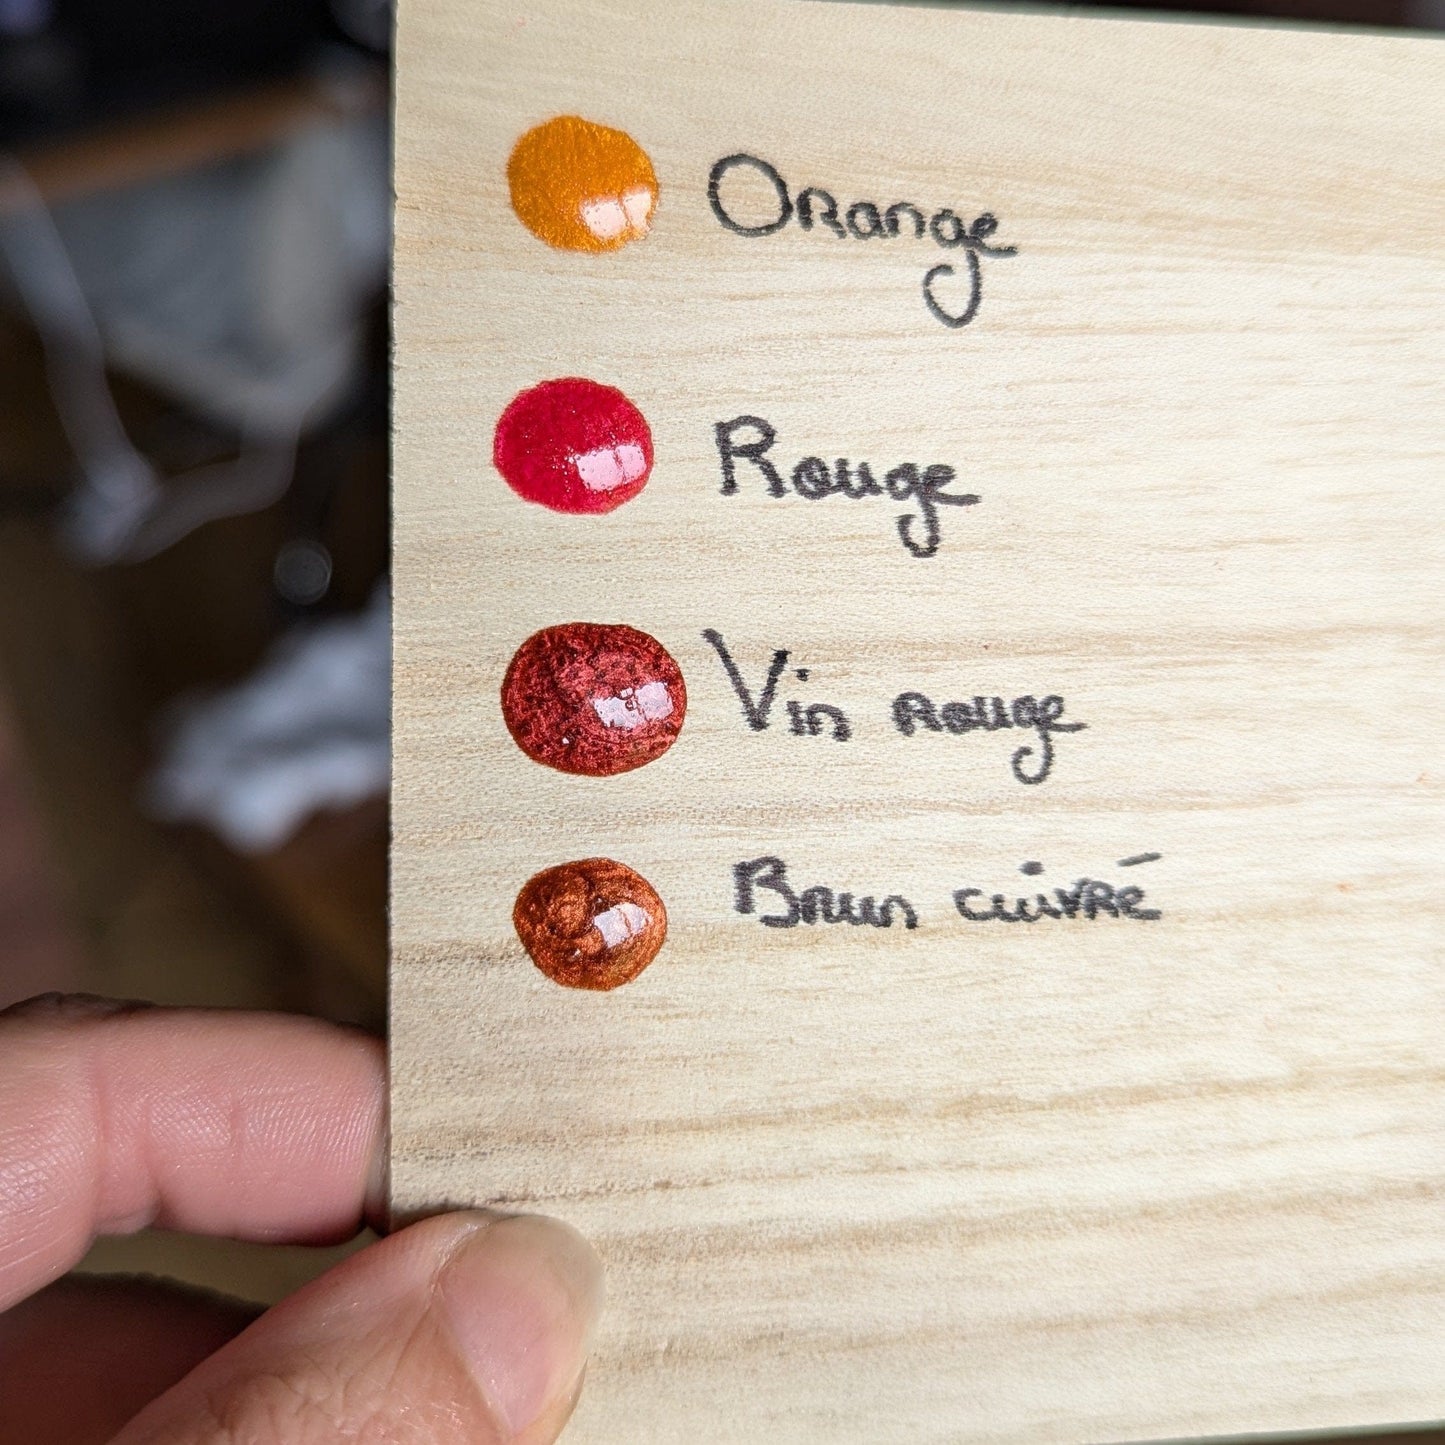 Orange
Rouge
Vin rouge
Brun cuivré